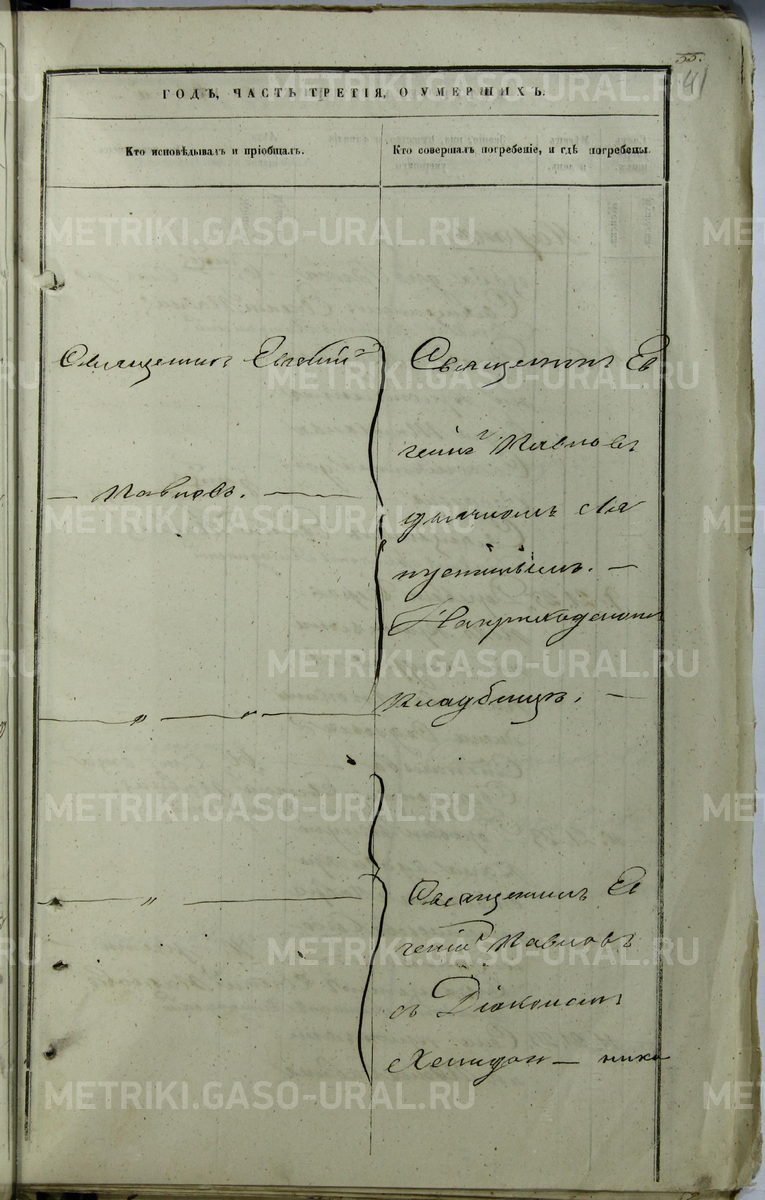 55.
41
ГОДЪ, ЧАСТЬ ТРЕТІЯ, О УМЕРШИХЪ.
Кто исповѣдывалъ и пріобщалъ.
Кто совершалъ погребеніе, и гдѣ погребены.
Священникъ Евгеній
Павловъ.
Священникъ Ев
геній Павловъ
Кладбищѣ.
Священникъ Ев
геній Павловъ
съ Діакономъ
METRIKI.GASO-URAL.RU